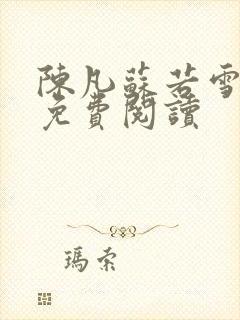 陳凡蘇若雪
免費閱讀
瑪索